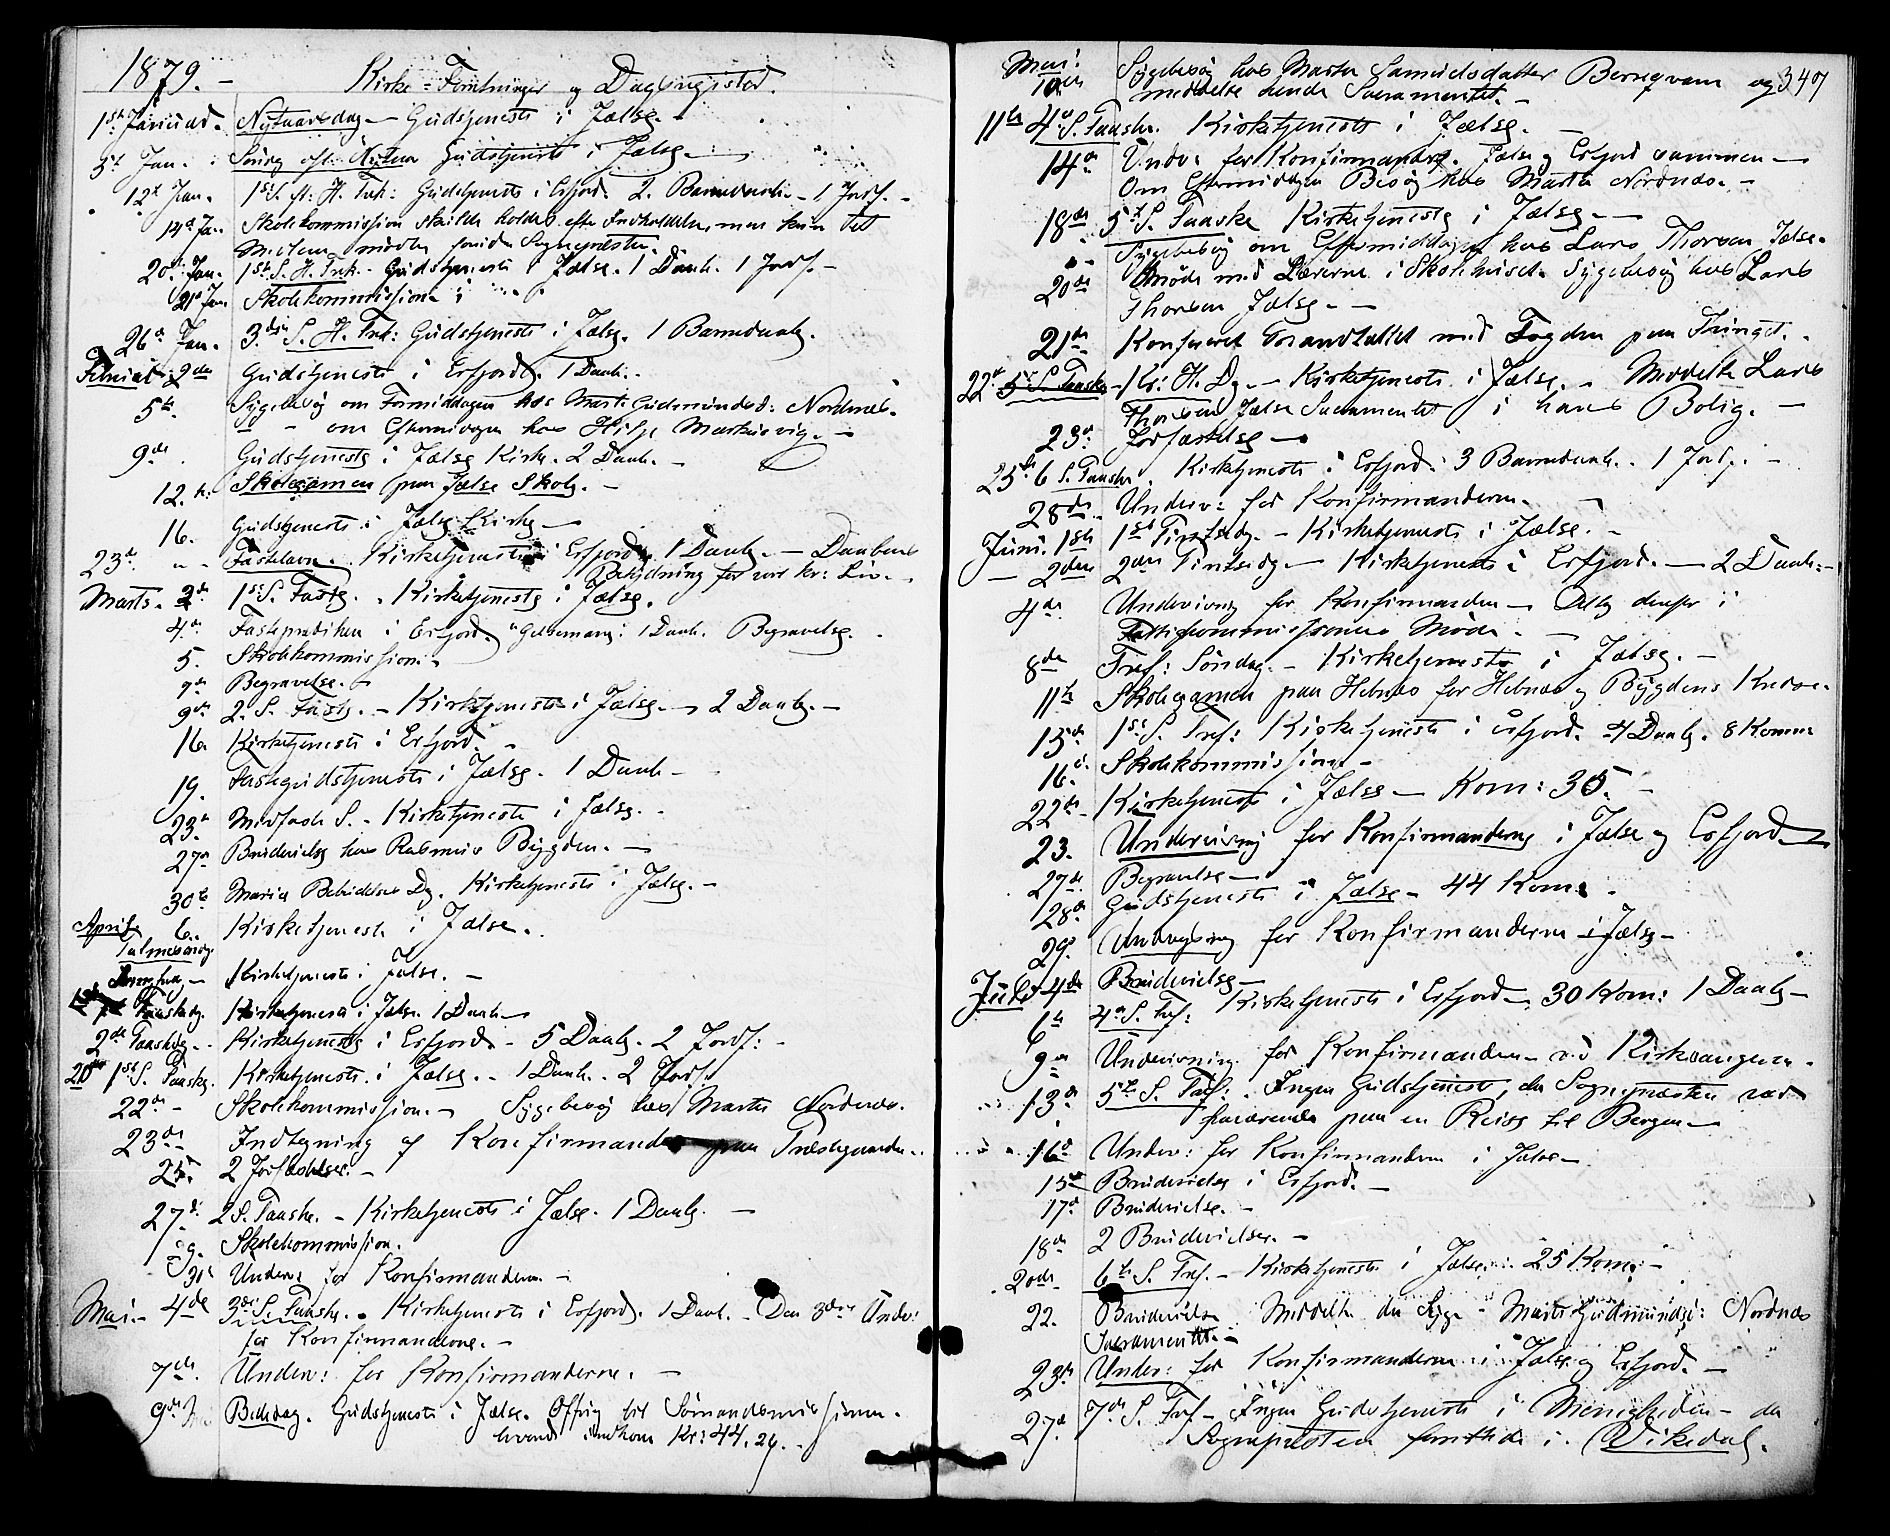 1879. -
Kirke-Forretninger og Dagregister.
1ste Januar. Nytaarsdag - Gudstjeneste i Jælse. -
5te Jan. Søndag eft. Nytaar Gudstjeneste i Jælse. -
12te Jan. 1st S. e. H. Trk: Gudstjeneste i Erfjord. 2. Barnedaab. - 1 Jordf. -
14de Jan. Skolekommission skulde holdes efter Indkaldelse, men kun tet
mødte foruden Sognepræsten.
20de Jan. 1st S. H. Trk. - Gudstjeneste i Jælse. 1 Daab. 1 Jordf. -
21de Jan. Skolekommission i
26de Jan. 3die S. H. Trk: Gudstjeneste i Jælse. 1 Barnedaab.
Februar 2den Gudstjeneste i Erfjord. 1 Daab. -
5te. Sygebesøg om Formiddagen hos Marte Gudmundsd: Nordnæs.
- - om Eftermidagen hos Hilje Markusvig. -
9de. Gudstjeneste i Jælse Kirke. 2 Daab. -
12te. Skoleexamen paa Jælse Skole. -
16. Gudstjeneste i Jælse Kirke -
23de Fastelavn. Kirketjeneste i Erfjord. 1 Daab. - Daabens
Betydning for vort kr: Liv. -
Marts. 2de 1st S. Faste. Kirketjeneste i Jælse.
4de Fasteprædiken i Erfjord. "Getsemane": 1 Daab. Begravelse.
5. Skolekommission. -
7de Begravelse. -
9de 2. S. Faste. - Kirketjeneste i Jælse. - 2 Daab. -
16. Kirketjeneste i Erfjord. -
19. Fastegudstjeneste i Jælse. 1 Daab -
23de Midfaste S. - Kirketjeneste i Jælse. -
27de Brudevielse hos Rasmus Bygden. -
30te Maria Bebudelses Dg. Kirketjeneste i Jælse. -
April 6. Kirketjeneste i Jælse.
Palmesøndg.
Kirketjeneste i Jælse. -
1ste Paaskedg. Kirketjeneste i Jælse 1 Daab -
2de Paaskedg - Kirketjeneste i Erfjord. - 5 Daab. 2 Jordf: -
20de 1st S. Paaske. Kirketjeneste i Jælse. - 1 Daab. 2 Jordf.
22de - Skolekommission. - Sygebesøg hos Marte Nordnæs.
23de Indtegning af Konfirmander paa Præstegaarden.
25. 2 Jordfæstelser. -
27de 2 S. Paaske. - Kirketjeneste i Jælse. 1 Daab. -
29. Skolekommission.
30te Underv: for Konfirmanderne. -
Mai. - 4de 3de S. Paaske. Kirketjeneste i Erfjord. 1 Daab. - Den 3die Underv:
for Konfirmanderne. -
7de. Underv: for Konfirmanderne. -
9de Bededag. Gudstjeneste i Jælse. Offring til Sømandsmissionen.
hvorved indkom Kr: 44,24. -
Mai:
10de Sygebesøg hos Marta Samuelsdatter Berseqvam og 347
meddelte hende Sacramentet. -
11te 4de S. Paaske. Kirketjeneste i Jælse. -
14de Underv: for Konfirmander. Jælse og Erfjord sammen -
Om Eftermiddagen Besøg hos Marta Nordnæs. -
18de 5te S. Paaske Kirketjeneste i Jælse. -
Sygebesøg om Eftermiddagen hos Lars Thorsen Jælse.
20de Møde med Lærerne i Skolehuset. Sygebesøg hos Lars
Thorsen Jælse. -
21de Konfereret Mandtallet med Fogden paa Thinget.
22de 5te S. Paaske - Kr: H. Dg. - Kirketjeneste i Jælse. - Meddelte Lars
Thorsen Jælse Sacramentet i hans Bolig. -
23de Jordfæstelse -
25te 6 S. Paaske. Kirketjeneste i Erfjord: 3 Barnedaab. 1 Jordf. -
28de. Underv: for Konfirmanderne. -
Juni. 1ste 1ste Pintsedg. - Kirketjeneste i Jælse. -
- 2den 2den Pintsedg. - Kirketjeneste i Erfjord. - 2 Daab: -
4de Underviisng for Konfirmanderne - Deltog derefter i
Fattigkommissionens Møde. -
8de Tref: Søndag. - Kirketjeneste i Jælse. -
11te Skoleexamen paa Hebnæs for Hebnæs og Bygdens Kredse.
15de 1st S. Tref: Kirketjeneste i Erfjord. 4 Daab. 8 Komm:
16de. Skolekommission. -
22de Kirketjeneste i Jælse - Kom: 35. -
23. Underviisng for Konfirmanderne i Jælse og Erfjord -
27de Begravelse -
28de Gudstjeneste i Jælse - 44 Kom: -
29de. Undervisng for Konfirmanderne i Jælse -
Juli 4de Brudevielse -
6te 4de S. Tref: Kirketjeneste i Erfjord - 30 Kom: 1 Daab -
9de Undervisning for Konfirmanderne ved Kirkesangeren.
13de 5te S. Tref: - Ingen Gudstjeneste, da Sognepræsten var
fraværende paa en Reise til Bergen -
16de Underv: for Konfirmanderne i Jælse -
15de Brudevielse i Erfjord. -
17de Brudevielse. -
18de 2 Brudevielser. -
20de 6te S. Tref. - Kirketjeneste i Jælse: 25 Kom: -
22. Brudevielse Meddelte den Syge - Marte Gudmundsd: Nordnæs
Sacramentet. -
23de Underv: for Konfirmanderne i Jælse og Erfjord. -
27de 7de S. Tref - Ingen Gudstjeneste i Menigheden - da
Sognepræsten forrettede i Vikedal.